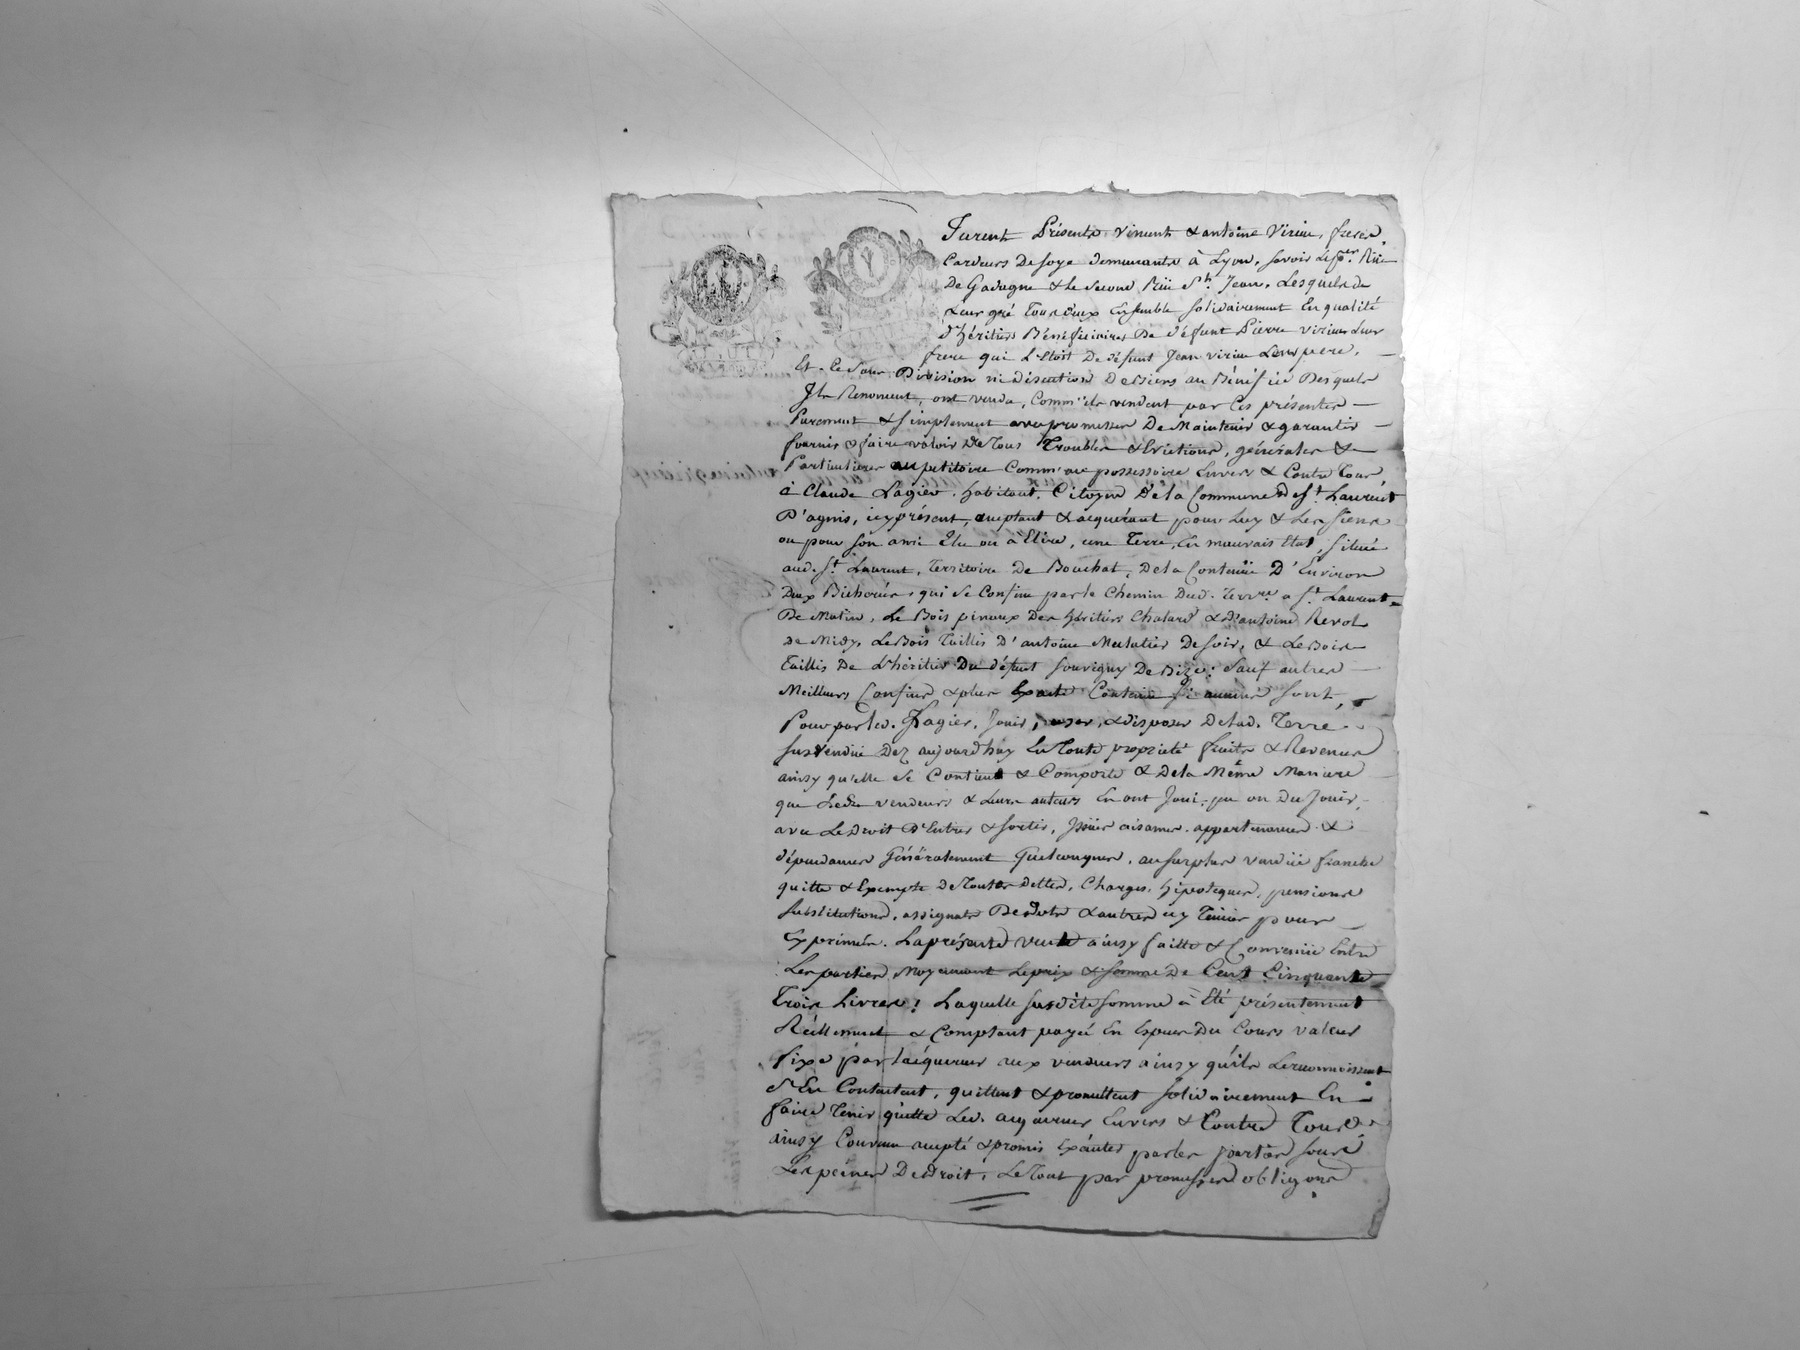 Furent Présents Vincent & antoine Virieu, freres
Cardeurs De soye demeurants à Lyon, savoir Le p.er Rüe
De Gadagne & Le second Rüe S.t Jean, Lesquels de
Leur gré Tous deux Ensemble solidairement En qualité
d'héritiers Bénéficiaires De défunt Pierre virieu Leur
frere qui L'Etoit De défunt Jean virieu Leur pere,
Et ce sans Division ni discution De Biens au Bénéfice Desquels
Ils Renoncent, ont vendu, Comm'ils vendent par Ces présentes
Purement & simplement avec promesses De Maintenir & garantir
fournir & faire valoir De Tous Troubles & Evictions, générales &
Particulieres au petitoire Comm'au possessoire Envers & Contre Tous
à Claude Lagier habitant Citoyen De la Commune De S.t Laurent
D'agnis, icy présent, acceptant & acquérant pour Luy & Les siens
ou pour son ami Elu ou à Elire, une Terre, En mauvais Etat, située
aud. S.t Laurent, Territoire De Bouchat, De la Contenüe D'Environ
Deux Bicherées, qui se Confine par le Chemin Dud. à S.t Laurent
De Matin, Le Bois pineux Des héritiers Chatard & D'antoine Revol
de Midy, Le Bois Taillis D'antoine Mulatier De soir, & Le Bois
Taillis De L'héritier Du défunt souvigny De Bize; sauf autres
Meilleurs Confins & plus Exacte Contenüe si aucuns sont,
Pour par led. Lagier, Jouir, user, & disposer De lad. Terre
susvendüe Dez aujourdhuy En Toute propriété fruits & Revenus
ainsy qu'elle se Contient & Comporte & De la Même Maniere
que Lesd. vendeurs & Leurs auteurs En ont Joui, pu ou Du Jouir,
avec Le Droit D'Entrer & sortir, aisances appartenances &
dépendances Généralement Quelconques, au surplus vendüe franche
quitte & Exempte De Toutes dettes, Charges, hipoteques, pensions
substitutions, assignats De dots & autres icy Tenües pour
Exprimées. La présente vente ainsy faitte & Convenüe Entre
Les parties Moyennant Le prix & somme De Cent Cinquante
Trois Livres; Laquelle susdite somme à Eté présentement
Réellement & Comptant payée En Especes Du Cours valeur
fixe par l'acquereur aux vendeurs ainsy qu'ils Le reconnoissent
s'En Contentent, quittent & promettent solidairement En
faire Tenir quitte Led. acquereur Envers & Contre Tous
ainsy Convenu accepté & promis Exécuter par les parties sous
Les peines De Droit, Le Tout par promesses obligons